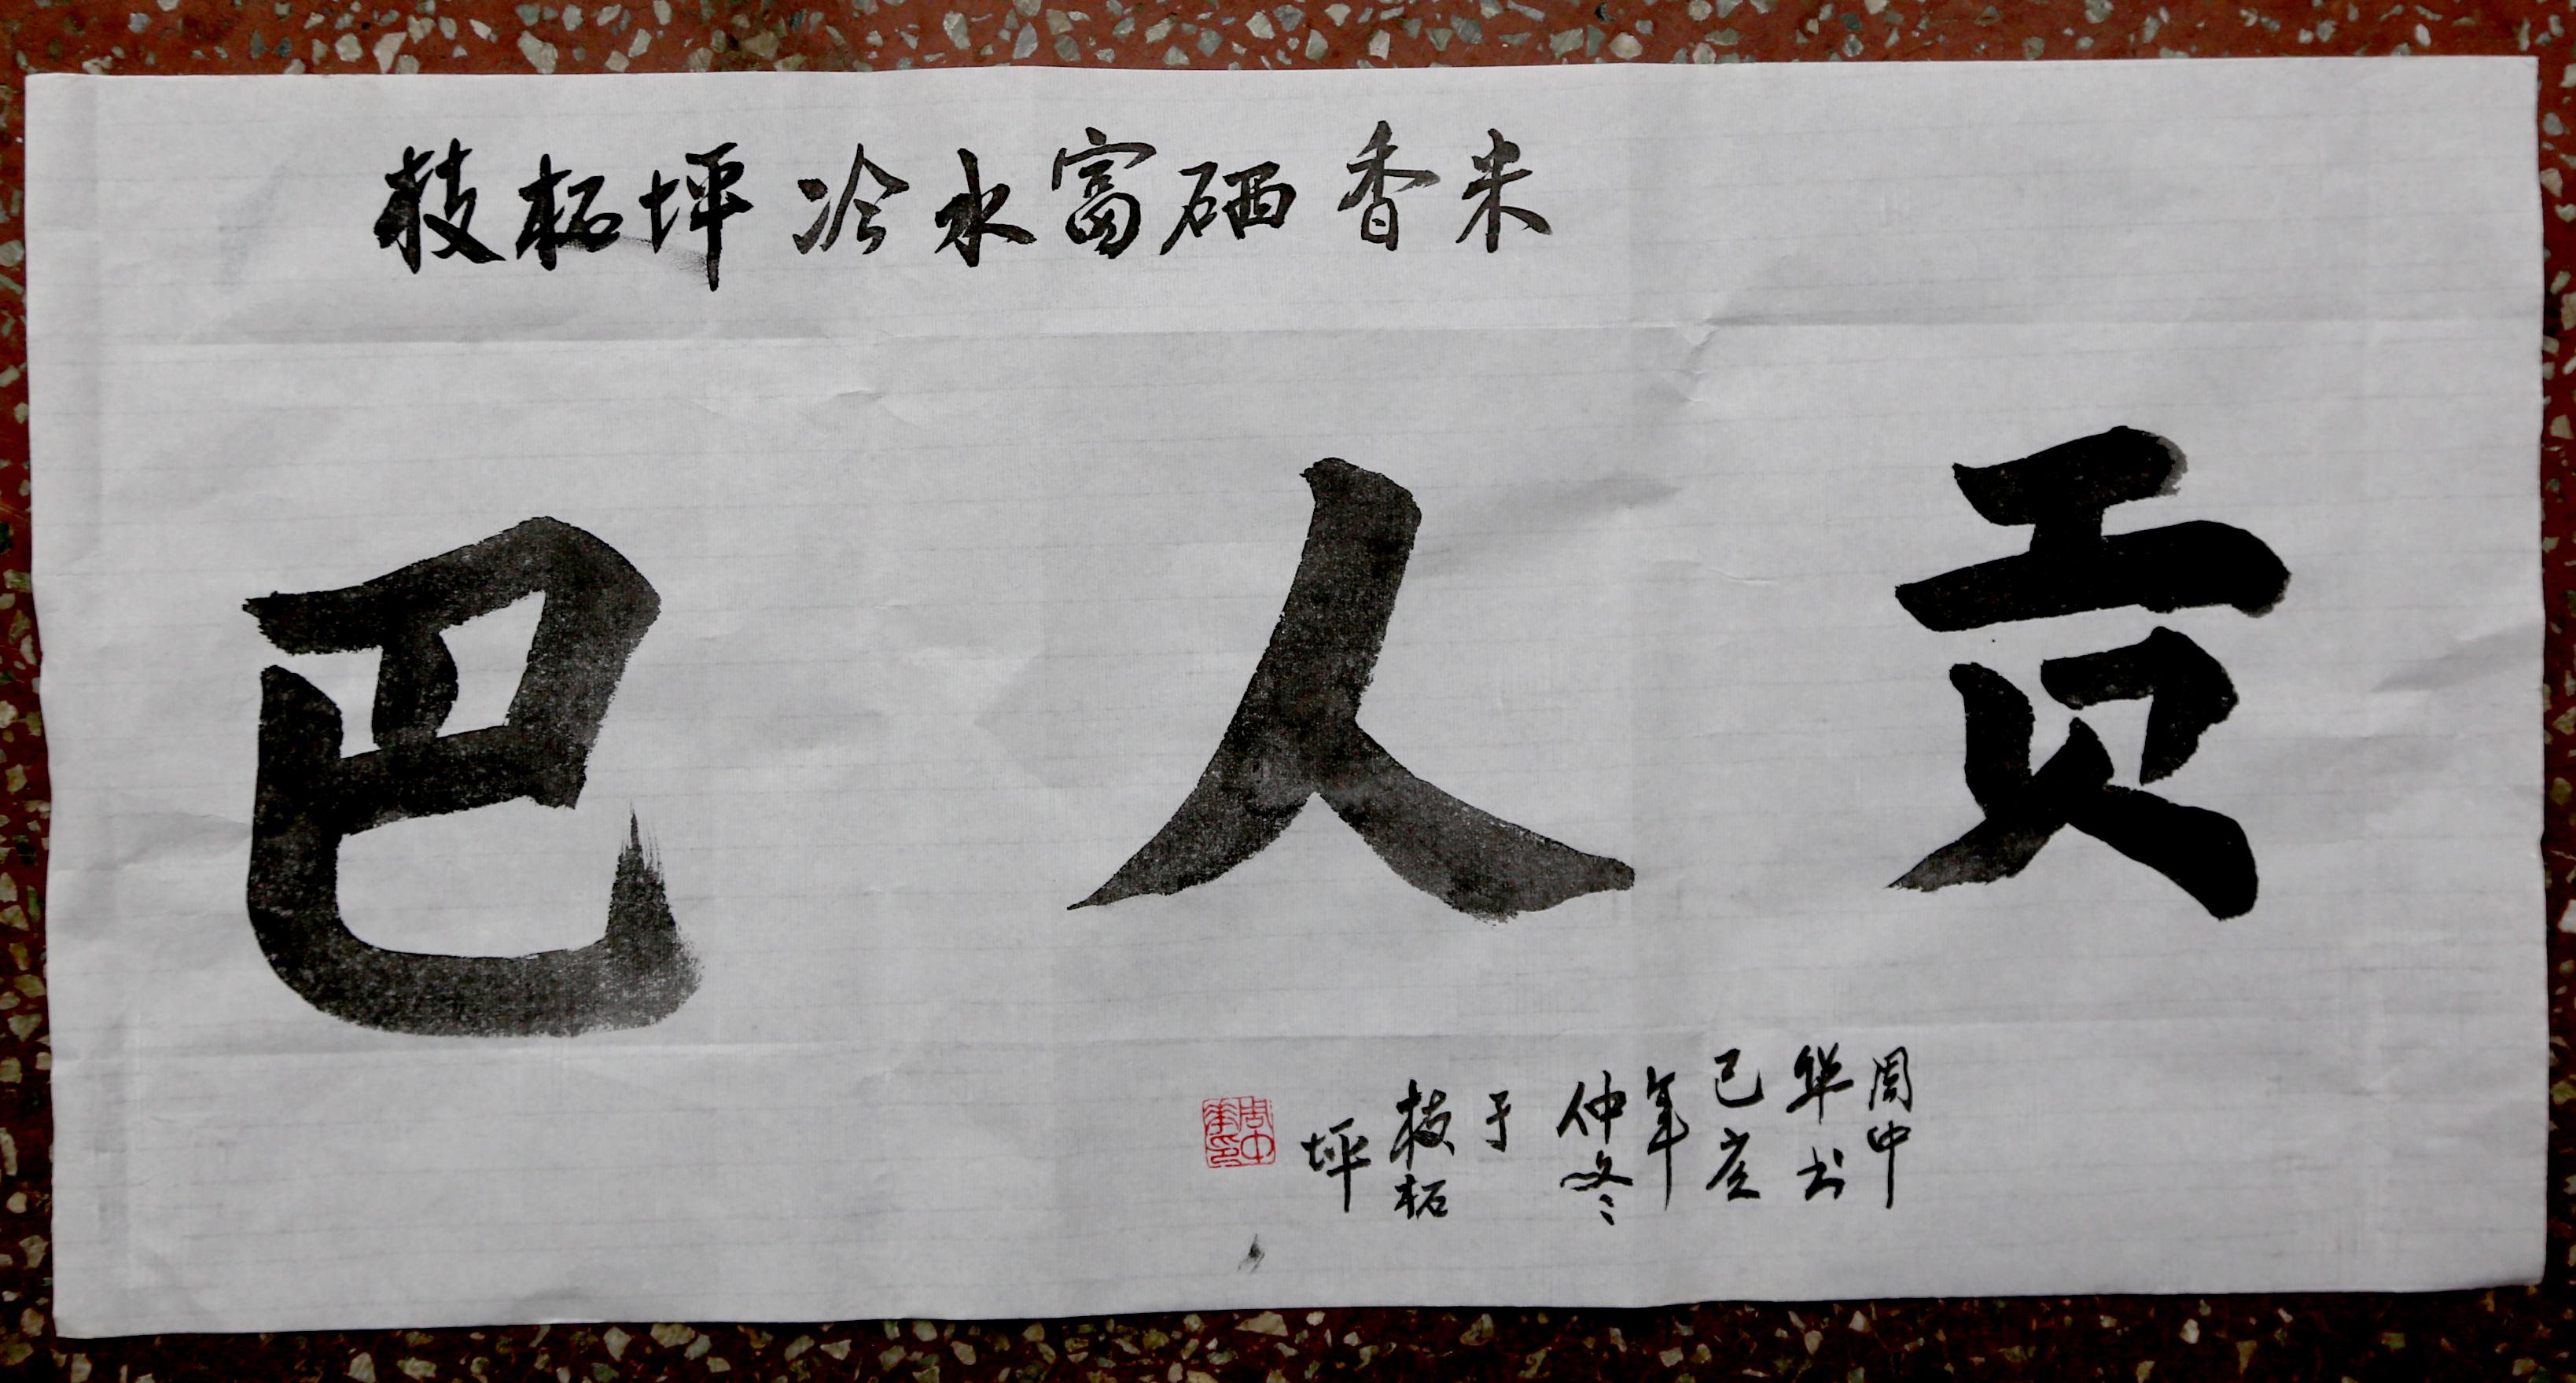 枝柘坪冷水富硒香米
巴人贡
周中
华书
己亥
年
仲冬
于
枝柘
坪
周中华印